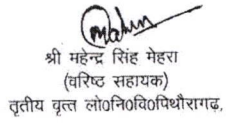 श्री महेन्द्र सिंह मेहरा
(वरिष्ठ सहायक)
तृतीय वृत्त लो0नि0वि0पिथौरागढ़,